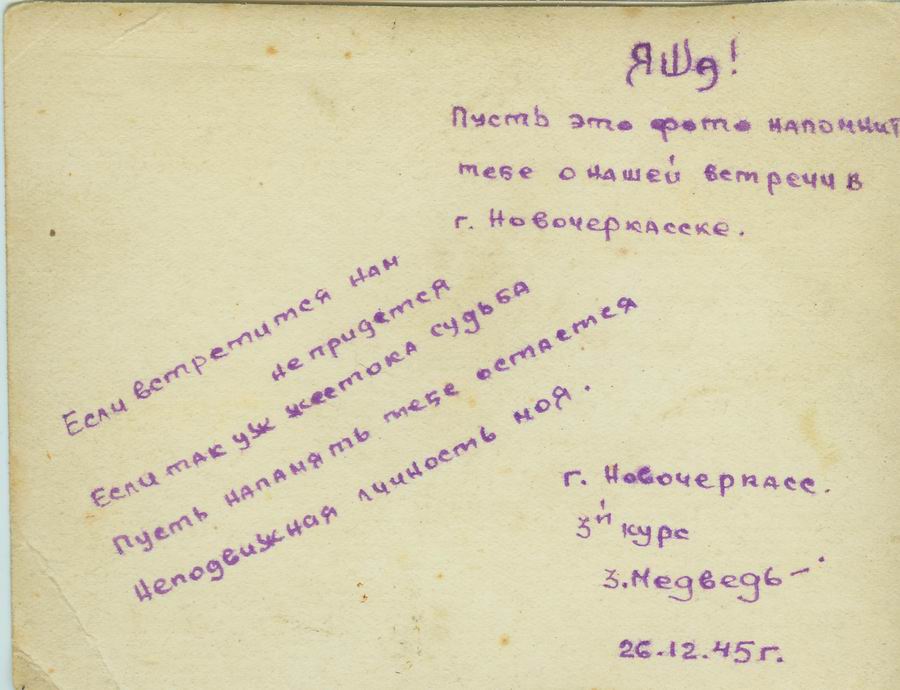 Яша!
Пусть это фото напомнит
тебе о нашей встречи в
г. Новочеркасске.
Если встретится нам
не придется
Если так уж жестока судьба
Пусть напамять тебе остается
Неподвижная личность моя.
г. Новочеркасс.
3й курс
З. Медведь
26.12.45г.